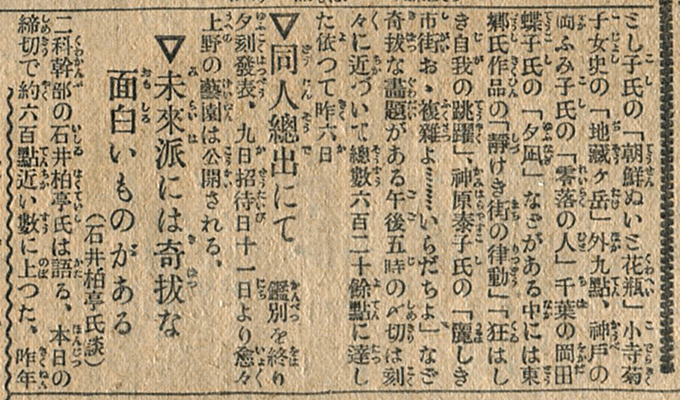 ミし子氏の「朝鮮ぬいミ花瓶」小寺菊
子女史の「地藏ヶ岳」外九點、神戸の
岡ふみ子氏の「零落の人」千葉の岡田
蝶子氏の「夕凪」なごがある中には東
郷氏作品の「靜けき街の律動」「狂はし
き自我の跳躍」、神原泰子氏の「麗しき
市街お、複雜よ……いらだちよ」なご
奇拔な畫題がある午後五時の〆切は刻
々に近づいて總數六百二十餘點に達し
た依つて昨六日
▽同人總出にて、鑑別を終り
夕刻發表、九日招待日十一日より愈々
上野の藝園は公開される、
▽未來派には奇拔な
面白いものがある
（石井柏亭氏談）
二科幹部の石井柏亭氏は語る、本日の
締切で約六百點近い數に上つた、昨年